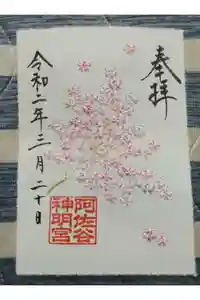 奉拝
阿佐谷
神明宮
令和二年三月二十日